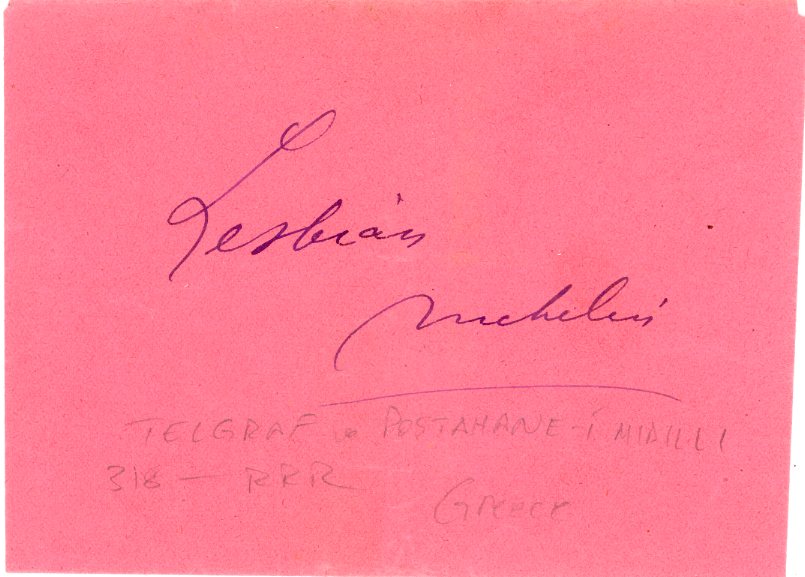 Lesbian
Michelin
TELGRAF ve POSTAHANE-İ MIDILLI
318 — RRR
Greece